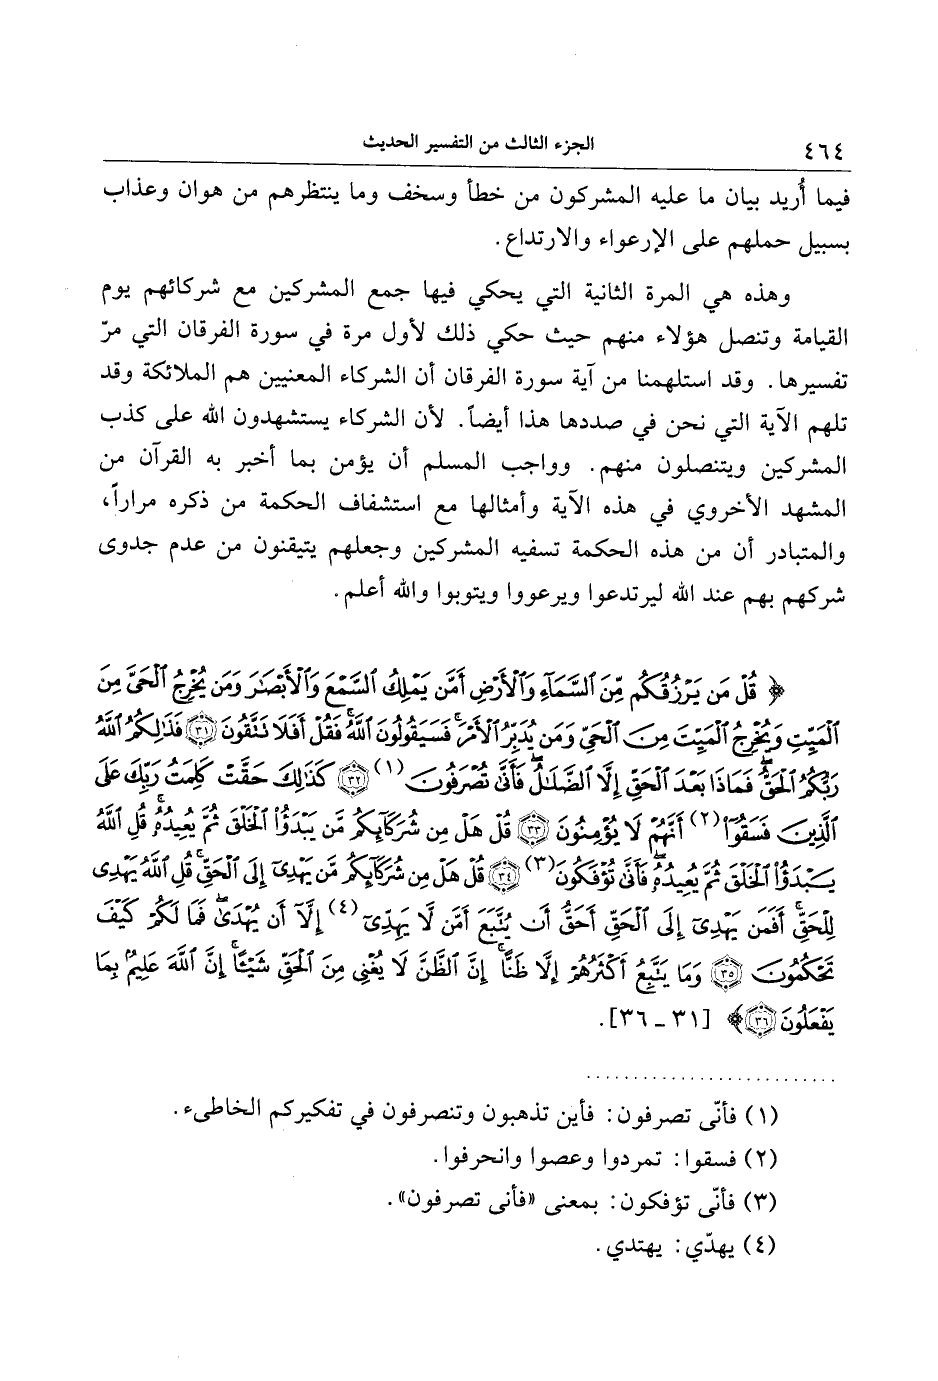 ٤٦٤
الجزء الثالث من التفسير الحديث
فيما أُريد بيان ما عليه المشركون من خطأ وسخف وما ينتظرهم من هوان وعذاب
بسبيل حملهم على الإرعواء والارتداع.
وهذه هي المرة الثانية التي يحكي فيها جمع المشركين مع شركائهم يوم
القيامة وتنصل هؤلاء منهم حيث حكي ذلك لأول مرة في سورة الفرقان التي مرّ
تفسيرها. وقد استلهمنا من آية سورة الفرقان أن الشركاء المعنيين هم الملائكة وقد
تلهم الآية التي نحن في صددها هذا أيضاً. لأن الشركاء يستشهدون الله على كذب
المشركين ويتنصلون منهم. وواجب المسلم أن يؤمن بما أخبر به القرآن من
المشهد الأخروي في هذه الآية وأمثالها مع استشفاف الحكمة من ذكره مراراً،
والمتبادر أن من هذه الحكمة تسفيه المشركين وجعلهم يتيقنون من عدم جدوى
شركهم بهم عند الله ليرتدعوا ويرعووا ويتوبوا والله أعلم.
﴿ قُلْ مَن يَرْزُقُكُم مِّنَ ٱلسَّمَآءِ وَٱلْأَرْضِ أَمَّن يَمْلِكُ ٱلسَّمْعَ وَٱلْأَبْصَٰرَ وَمَن يُخْرِجُ ٱلْحَىَّ مِنَ
ٱلْمَيِّتِ وَيُخْرِجُ ٱلْمَيِّتَ مِنَ ٱلْحَىِّ وَمَن يُدَبِّرُ ٱلْأَمْرَ ۚ فَسَيَقُولُونَ ٱللَّهُ ۚ فَقُلْ أَفَلَا تَتَّقُونَ ٣١ فَذَٰلِكُمُ ٱللَّهُ
رَبُّكُمُ ٱلْحَقُّ ۖ فَمَاذَا بَعْدَ ٱلْحَقِّ إِلَّا ٱلضَّلَٰلُ ۖ فَأَنَّىٰ تُصْرَفُونَ (١) ٣٢ كَذَٰلِكَ حَقَّتْ كَلِمَتُ رَبِّكَ عَلَى
ٱلَّذِينَ فَسَقُوٓا۟ (٢) أَنَّهُمْ لَا يُؤْمِنُونَ ٣٣ قُلْ هَلْ مِن شُرَكَآئِكُم مَّن يَبْدَؤُا۟ ٱلْخَلْقَ ثُمَّ يُعِيدُهُۥ ۚ قُلِ ٱللَّهُ
يَبْدَؤُا۟ ٱلْخَلْقَ ثُمَّ يُعِيدُهُۥ ۖ فَأَنَّىٰ تُؤْفَكُونَ (٣) ٣٤ قُلْ هَلْ مِن شُرَكَآئِكُم مَّن يَهْدِىٓ إِلَى ٱلْحَقِّ ۚ قُلِ ٱللَّهُ يَهْدِى
لِلْحَقِّ ۗ أَفَمَن يَهْدِىٓ إِلَى ٱلْحَقِّ أَحَقُّ أَن يُتَّبَعَ أَمَّن لَّا يَهِدِّىٓ (٤) إِلَّآ أَن يُهْدَىٰ ۖ فَمَا لَكُمْ كَيْفَ
تَحْكُمُونَ ٣٥ وَمَا يَتَّبِعُ أَكْثَرُهُمْ إِلَّا ظَنًّا ۚ إِنَّ ٱلظَّنَّ لَا يُغْنِى مِنَ ٱلْحَقِّ شَيْـًٔا ۚ إِنَّ ٱللَّهَ عَلِيمٌۢ بِمَا
يَفْعَلُونَ ٣٦﴾ [٣١ ـ ٣٦].
(١) فأنّى تصرفون: فأين تذهبون وتنصرفون في تفكيركم الخاطىء.
(٢) فسقوا: تمردوا وعصوا وانحرفوا.
(٣) فأنّى تؤفكون: بمعنى «فأنى تصرفون».
(٤) يهدّي: يهتدي.